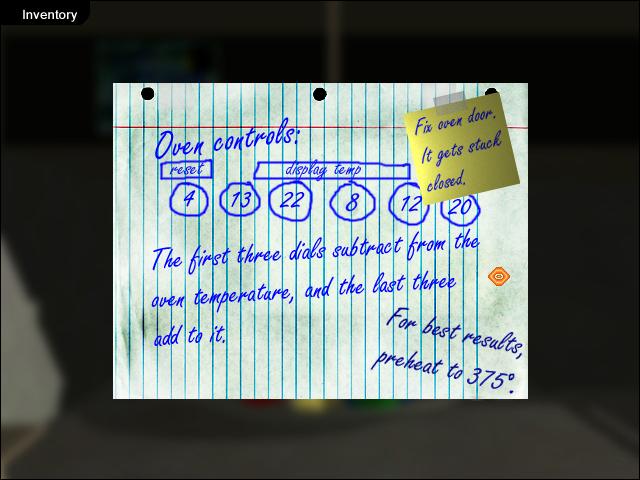 Inventory
Oven controls:
reset
display temp
4 13 22 8 12 20
The first three dials subtract from the
oven temperature, and the last three
add to it.
For best results,
preheat to 375°.
Fix oven door.
It gets stuck
closed.